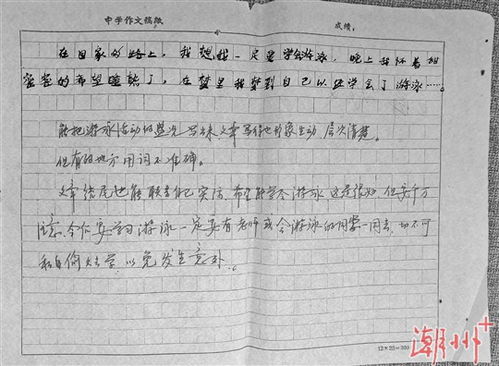 中学作文稿纸 成绩:
在回家的路上,我想我一定要学会游泳,晚上我怀着甜
蜜的希望睡熟了,在梦里我梦到自己以经学会了游泳……
能把游泳活动的盛况写出来,文章写得也形象生动,层次清楚。
但有的地方用词不准确。
文章结尾也能联系自己实际,希望能学会游泳这是很好,但要千万
注意,今后要学习游泳一定要有老师或会游泳的同学一同去,切不可
私自偷去学,以免发生意外。
12×25=300
潮州+